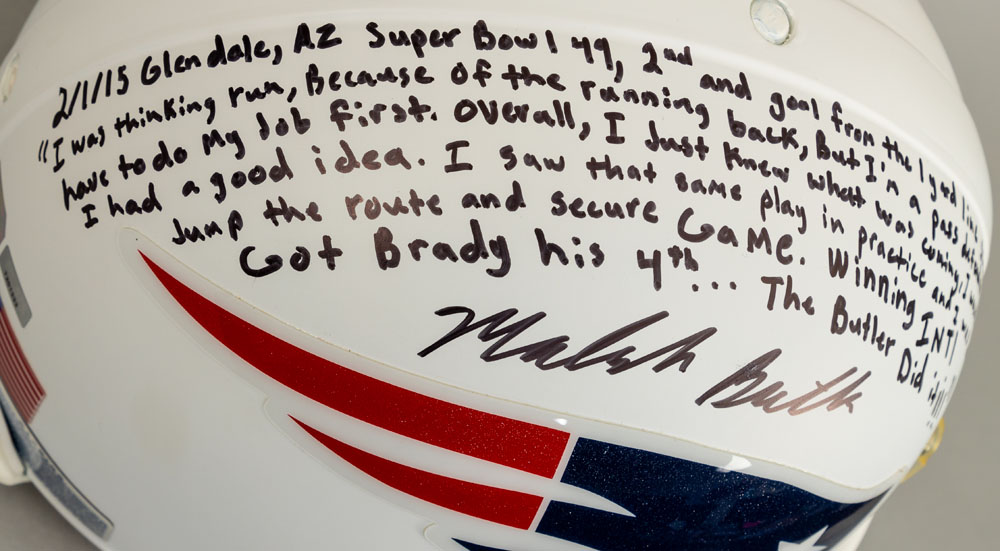 2/1/15 Glendale, AZ Super Bowl 49, 2nd and goal from the 1 yard line
"I was thinking run, Because of the running back, But I'm a pass
have to do My Job first. Overall, I Just knew what was coming, I
I had a good idea. I saw that same play in practice and I
Jump the route and secure Game. Winning INT!
Got Brady his 4th... The Butler Did it!!!
Malcolm Butler